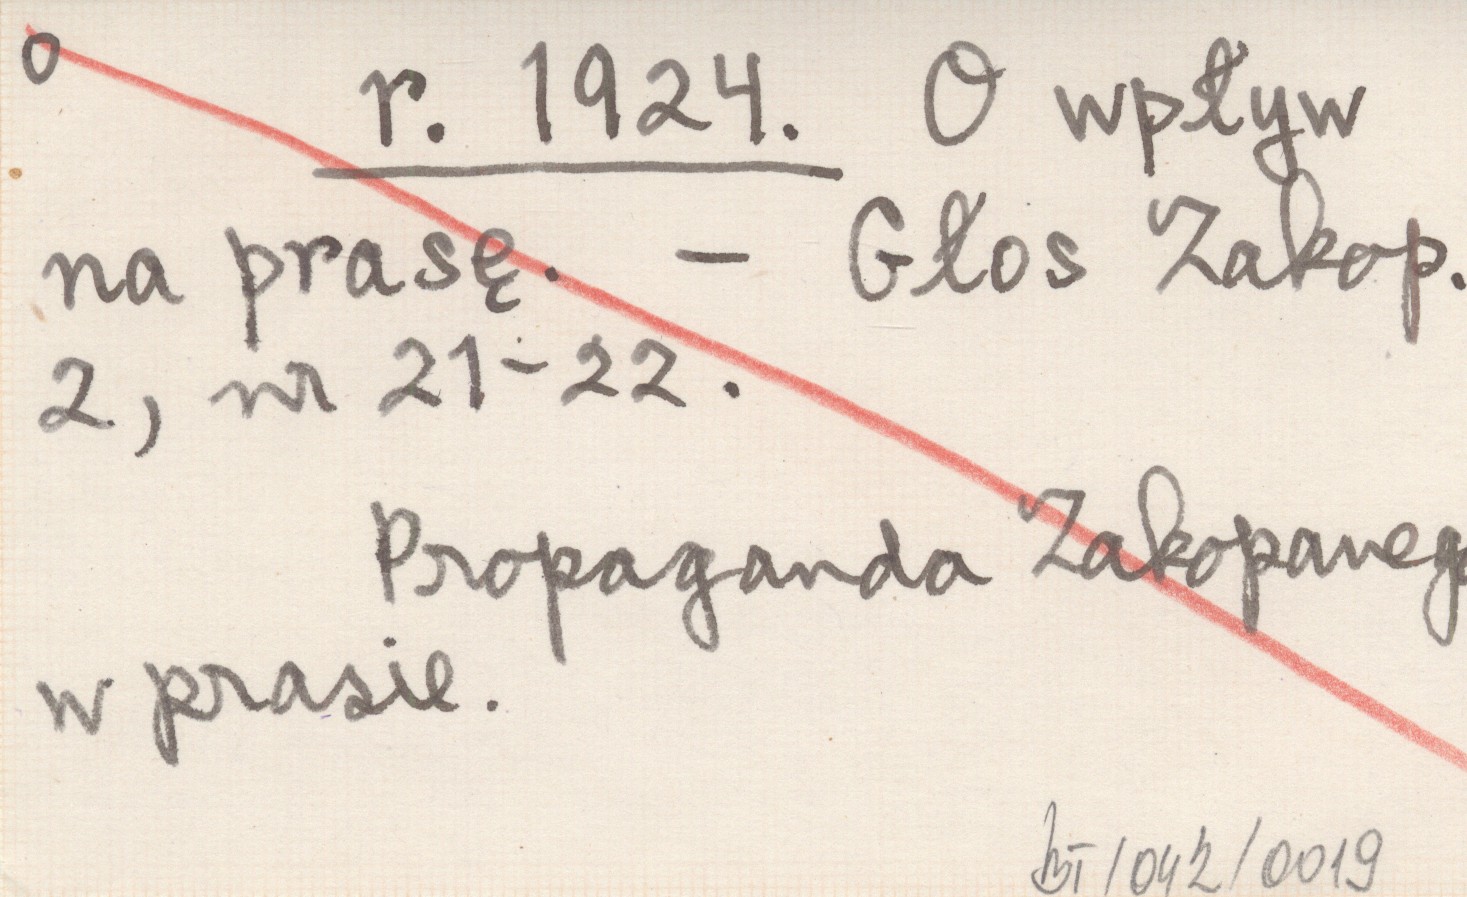 o
r. 1924. O wpływ
na prasę. – Głos Zakop.
2, nr 21-22.
Propaganda Zakopanego
w prasie.
BT/042/0019